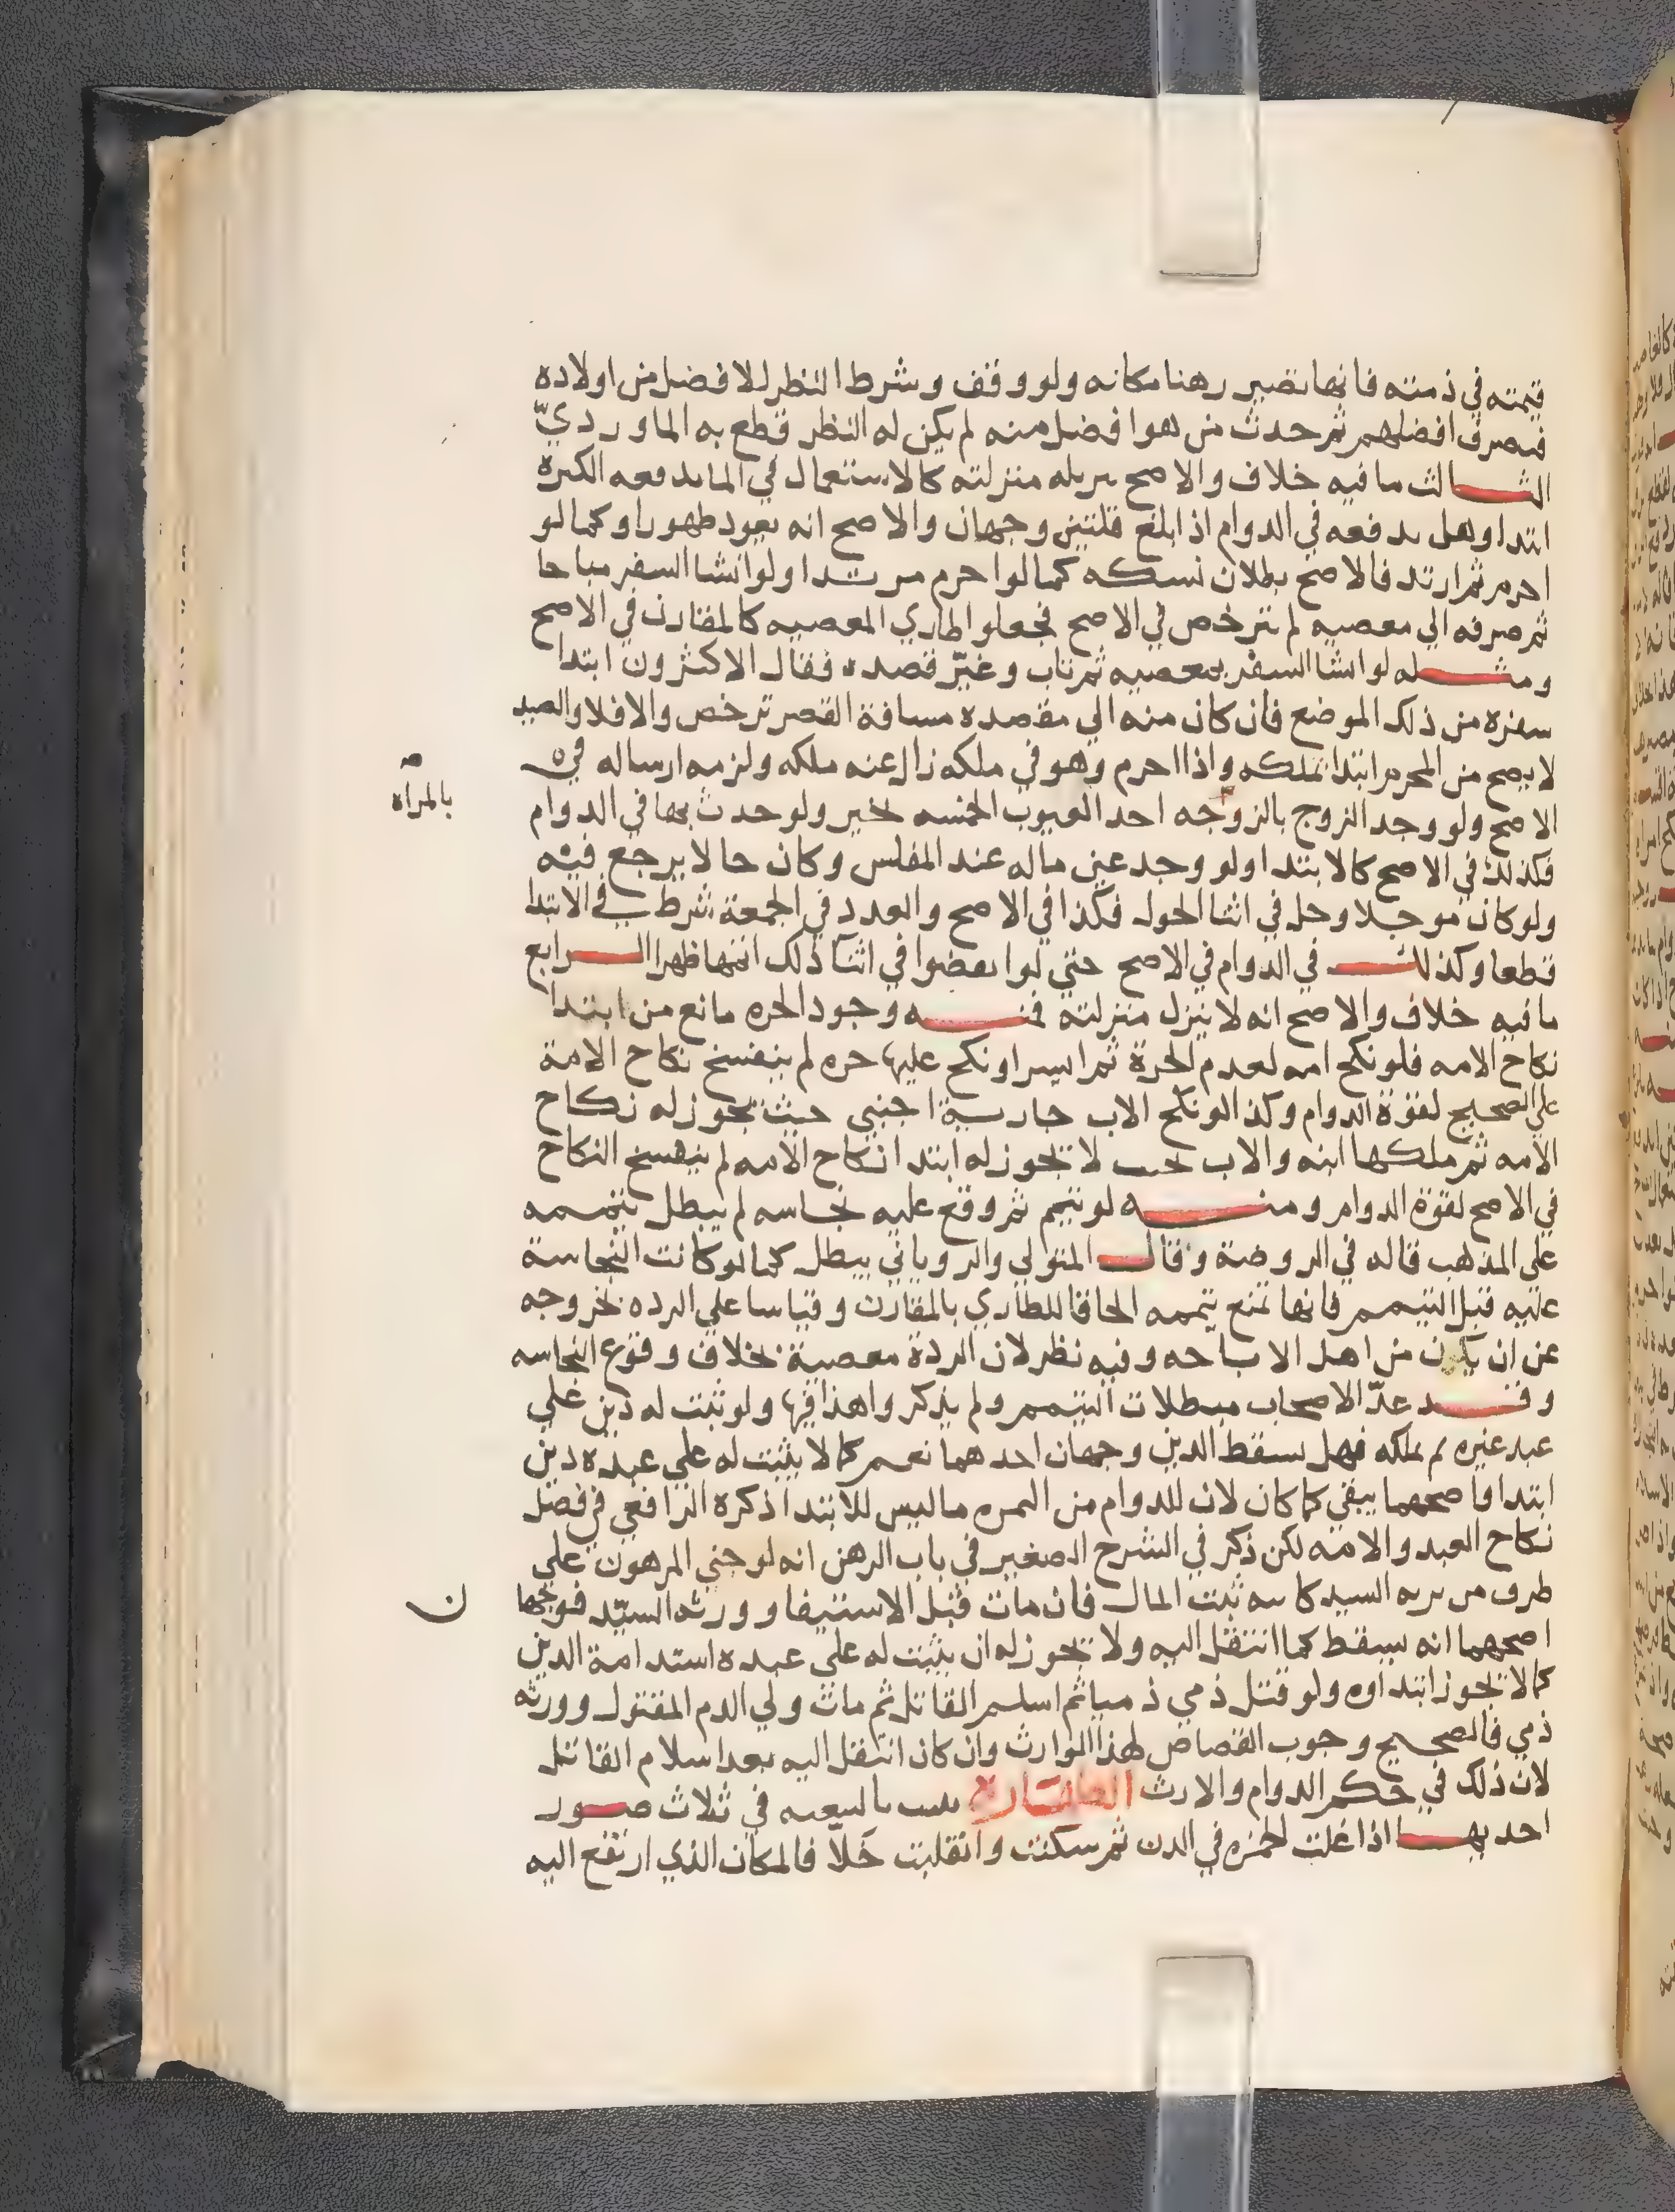 قيمته في ذمته فانها تصير رهنا مكانه ولو وقف وشرط النظر للافضل من اولاده
فصرف افضلهم ثم حدث من هو افضل منه لم يكن له النظر قطع به الماوردي
الثالث ما فيه خلاف والاصح تنزيله منزلته كالاستعمال في الما يدفعه الكثرة
ابتدا وهل يدفعه في الدوام اذا بلغ قلتين وجهان والاصح انه يعود طهورا وكما لو
احرم ثم ارتد فالاصح بطلان نسكه كما لو احرم مرتدا ولو انشا السفر مباحا
ثم صرفه الي معصيه لم يترخص في الاصح فجعلوا طاري المعصيه كالمقارن في الاصح
ومثله لو انشا السفر بمعصيه ثم تاب وغيّر قصده فقال الاكثرون ابتدا
سفره من ذلك الموضع فان كان منه الي مقصده مسافة القصر ترخص والا فلا والصيد
لا يصح من المحرم ابتدا تملكه واذا احرم وهو في ملكه زال عنه ملكه ولزمه ارساله في
الاصح ولو وجد الزوج بالزوجه احد العيوب الخمسه تخير ولو حدث بها في الدوام
بالمراه
فكذلك في الاصح كالابتدا ولو وجد عين ماله عند المفلس وكان حالا يرجع فيه
ولو كان موجلا وحل في اثنا الحول فكذا في الاصح والعدد في الجمعة شرط في الابتدا
قطعا وكذلك في الدوام في الاصح حتي لو انفضوا في اثنا ذلك اتمها ظهرا الرابع
ما فيه خلاف والاصح انه لا ينزل منزلته فمنه وجود الحره مانع من ابتدا
نكاح الامه فلو نكح امه لعدم الحرة ثم ايسر او نكح عليها حره لم ينفسخ نكاح الامة
علي الصحيح لقوة الدوام وكذا لو نكح الاب جارية اجنبي حيث يجوز له نكاح
الامه ثم ملكها ابنه والاب بحيث لا يجوز له ابتدا نكاح الامه لم ينفسخ النكاح
في الاصح لقوة الدوام ومنه لو تيمم ثم وقع عليه نجاسه لم يبطل تيممه
على المذهب قاله في الروضة وقال المتولي والروياني يبطل كما لو كانت النجاسة
عليه قبل التيمم فانها تمنع تيممه الحاقا للطاري بالمقارن وقياسا علي الرده لخروجه
عن ان يكون من اهل الاباحه وفيه نظر لان الردة معصية بخلاف وقوع النجاسه
وقد عدّ الاصحاب مبطلات التيمم ولم يذكروا هذا فيها ولو ثبت له دين علي
عبد غيره ثم ملكه فهل يسقط الدين وجهان احدهما نعم كما لا يثبت له علي عبده دين
ابتدا واصحهما يبقي كما كان لان للدوام من القوه ما ليس للابتدا ذكره الرافعي في فصل
نكاح العبد والامه لكن ذكر في الشرح الصغير في باب الرهن انه لو جني المرهون علي
طرف من يرثه السيد كابنه ثبت المال فان مات قبل الاستيفا وورثه السيد فوجها
ن
اصحهما انه يسقط كما انتقل اليه ولا يجوز له ان يثبت له علي عبده استدامة الدين
كما لا يجوز ابتداوه ولو قتل ذمي ذميا ثم اسلم القاتل ثم مات ولي الدم المقتول وورثه
ذمي فالصحيح وجوب القصاص لهذا الوارث وان كان انتقل اليه بعد اسلام القاتل
لان ذلك في حكم الدوام والارث الطهارة تثبت بالتبعيه في ثلاث صور
احديها اذا غلت الخمره في الدن ثم سكنت وانقلبت خلّا فالمكان الذي ارتفع اليه